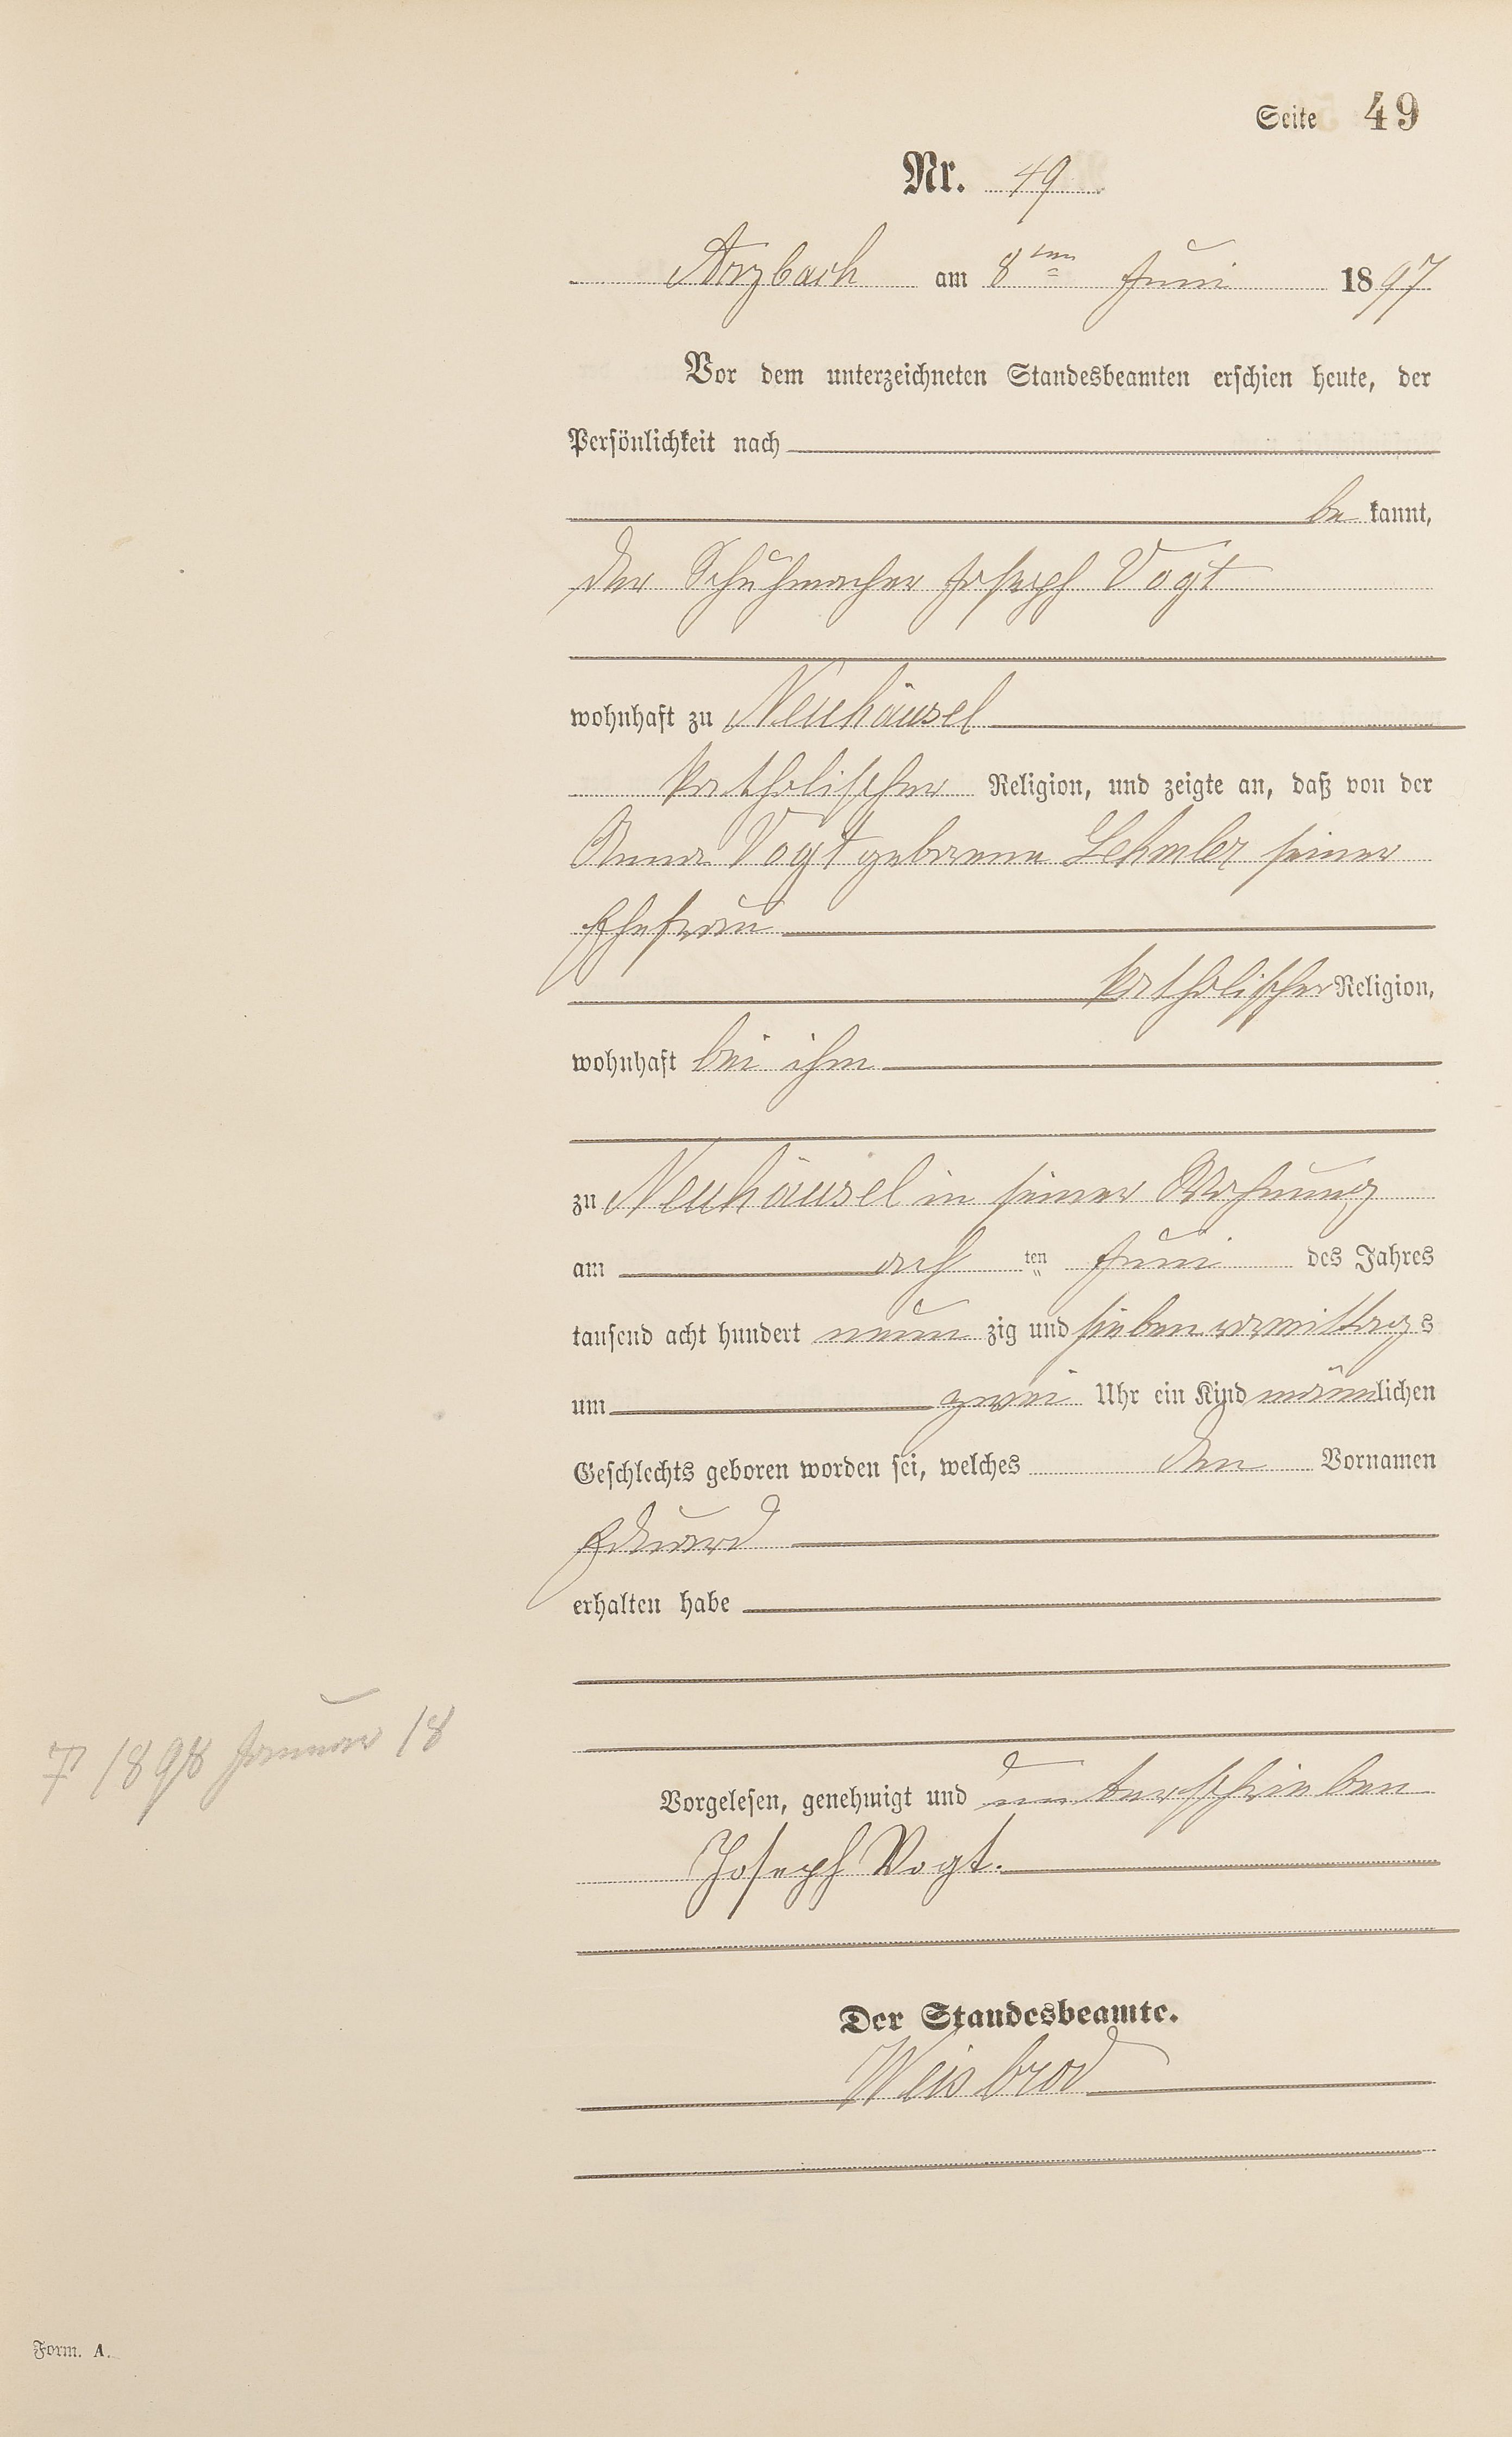 Seite 49
Nr. 49
Arzbach am 8ten Juni 1897
Vor dem unterzeichneten Standesbeamten erschien heute, der
Persönlichkeit nach
be kannt,
der Schuhmacher Joseph Vogt
wohnhaft zu Neuhäusel
katholischer Religion, und zeigte an, daß von der
Anna Vogt geborene Lehmler seiner
Ehefrau
katholischer Religion,
wohnhaft bei ihm
zu Neuhäusel in seiner Wohnung
am ach ten Juni des Jahres
tausend acht hundert neun zig und sieben vormittags
um zwei Uhr ein Kind männlichen
Geschlechts geboren worden sei, welches den Vornamen
Eduard
erhalten habe
† 1898 Januar 18
Vorgelesen, genehmigt und unterschrieben
Joseph Vogt.
Der Standesbeamte.
Weisbrod
Form. A.